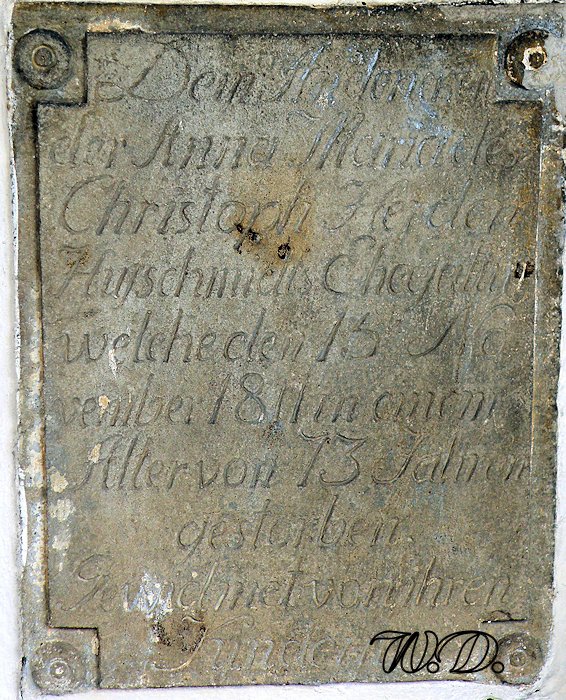 Dem Andencken
der Anna Maria des
Christoph Heiden
Hufschmieds Ehegattin
welche den 13 No
vember 1811 in einem
Alter von 73 Jahren
gestorben.
Gewidmet von ihren
Kindern
W.D.